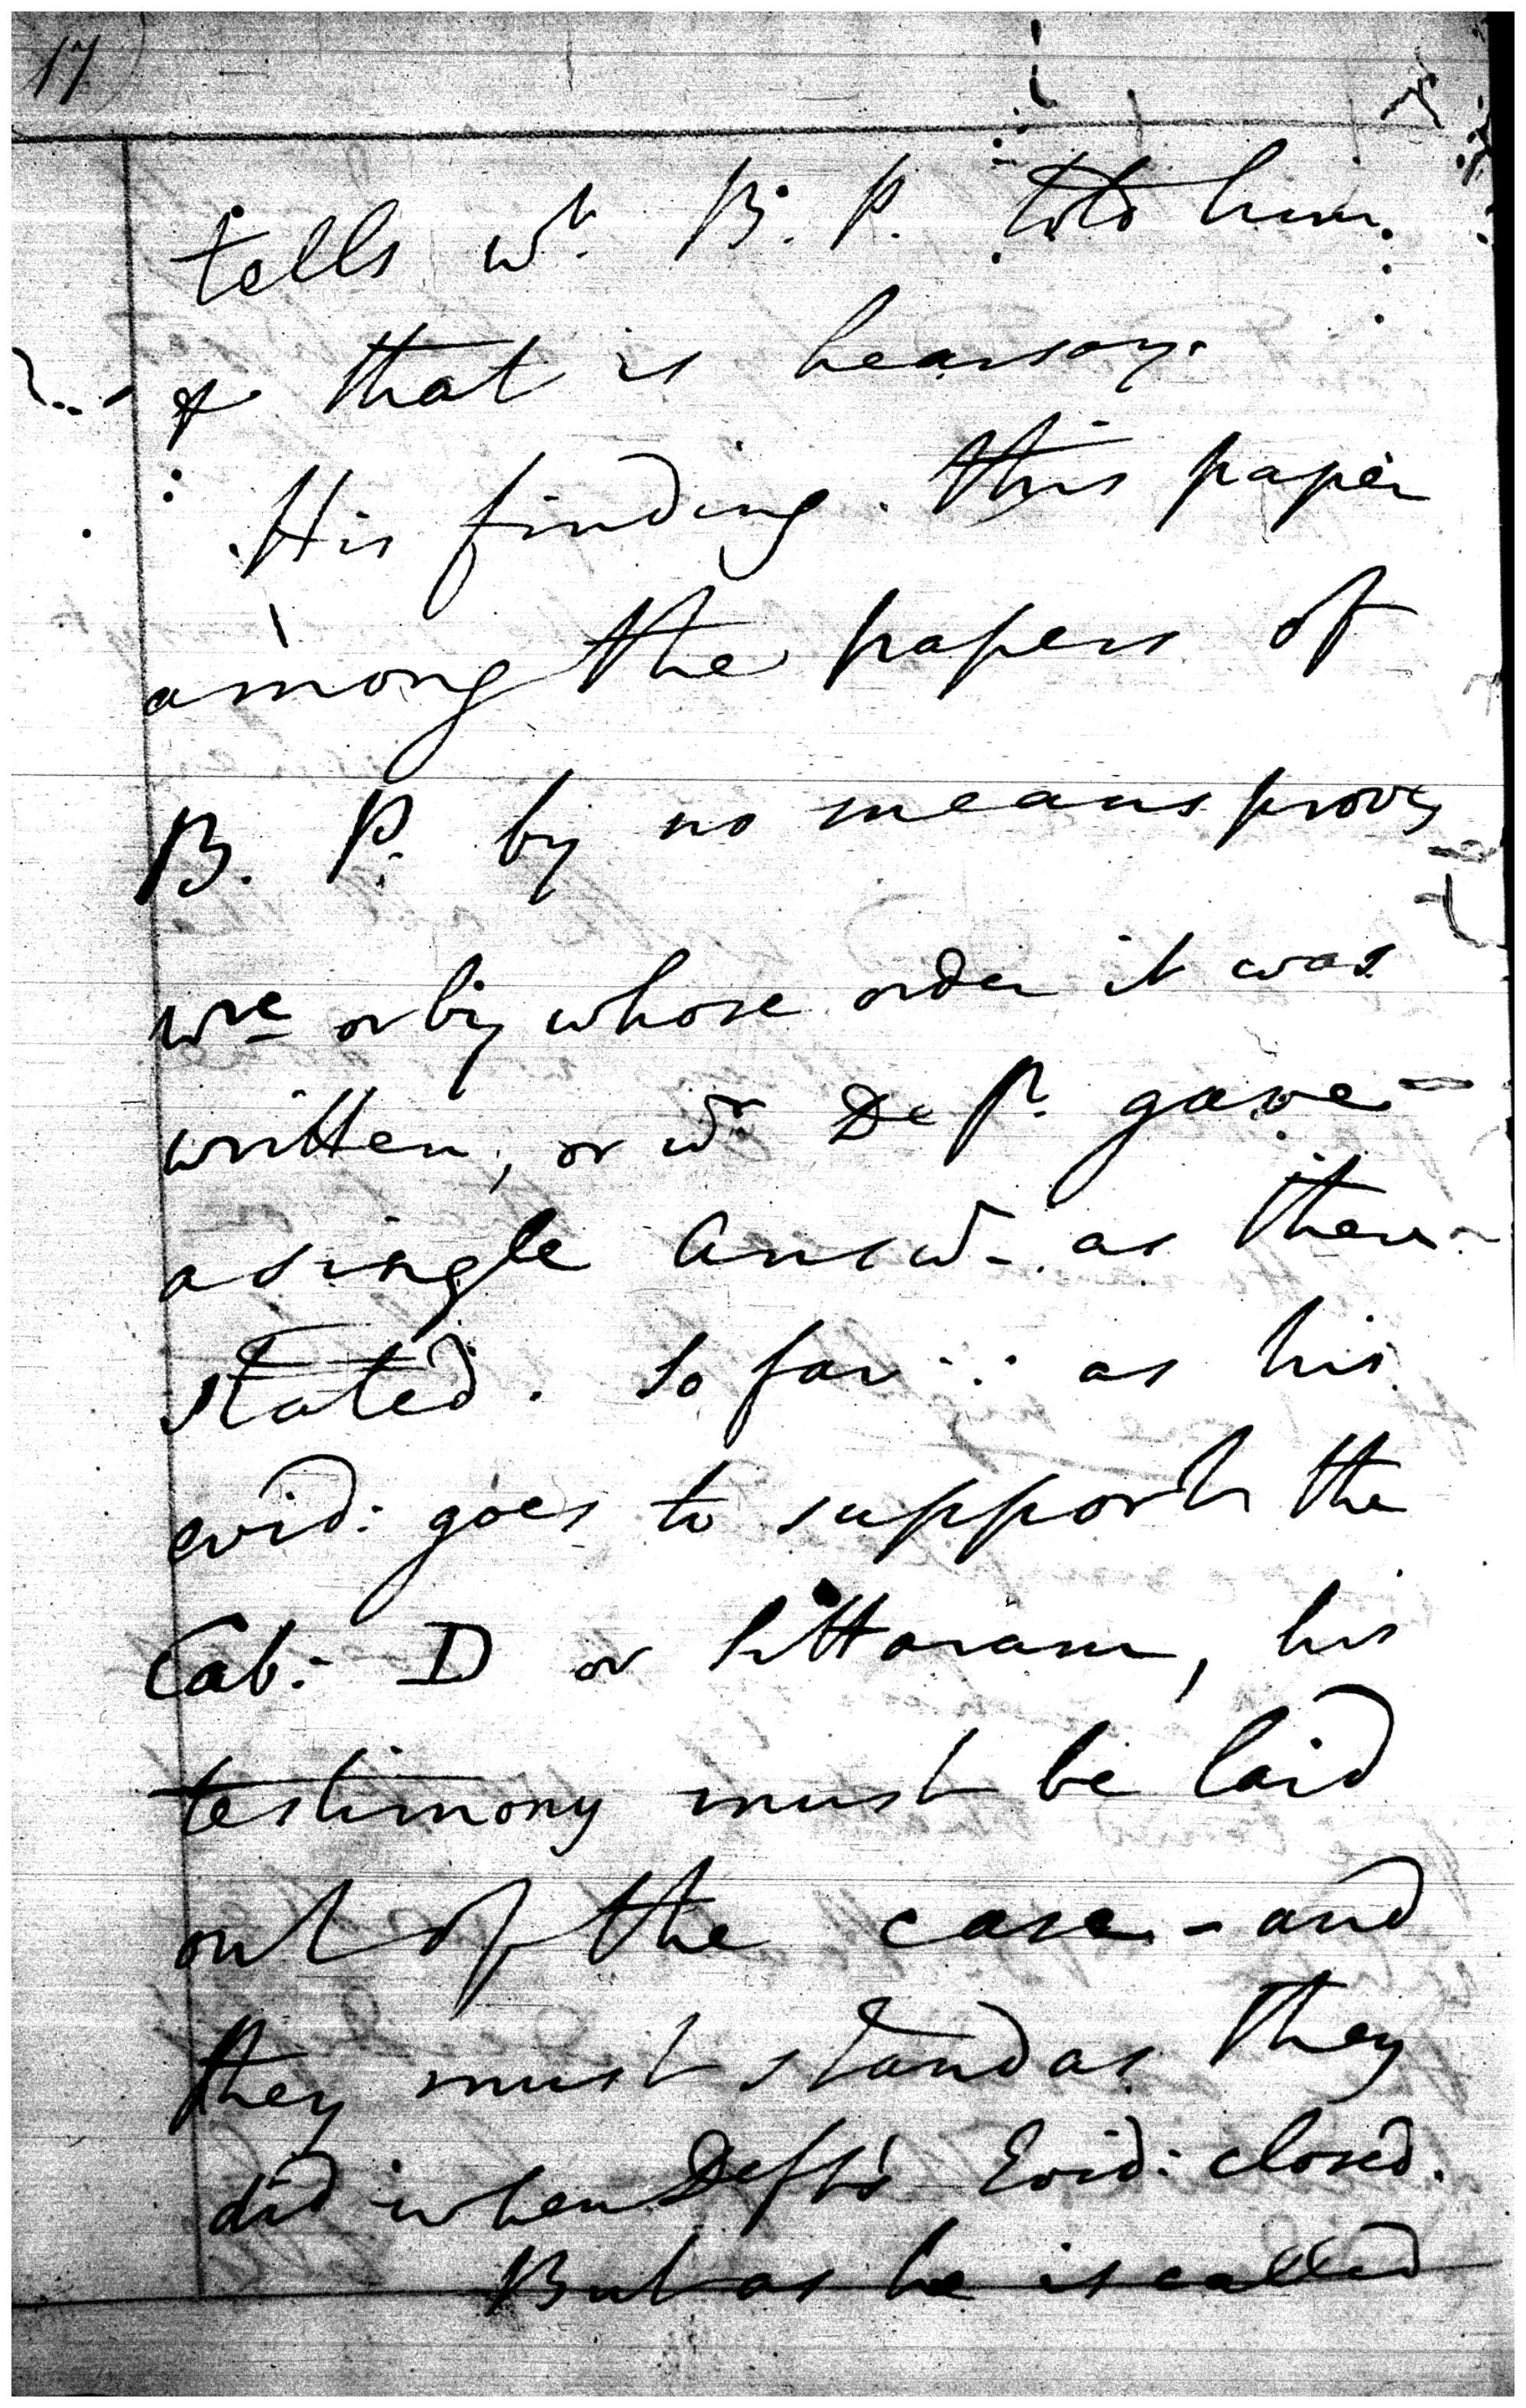 17
tells wt. B. P. told him
& that is hearsay.
His finding this paper
among the papers of
B. P. by no means proves
or by whose order it was
written, or wr De P. gave
a single Answ- as there
stated. So far as his
evid: goes to support the
Cab: D or his
testimony must be laid
out of the case - and
they must stand as they
did when Deft's Evid: closed.
But as he is called